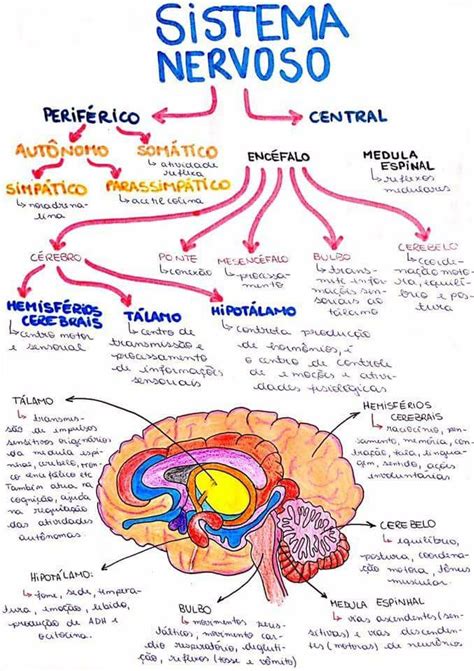 SISTEMA
NERVOSO
PERIFÉRICO
CENTRAL
AUTÔNOMO
SOMÁTICO
↳ atividade
reflexa
ENCÉFALO
MEDULA
ESPINAL
↳ reflexos
medulares
SIMPÁTICO
↳ noradrena-
lina
PARASSIMPÁTICO
↳ acetilcolina
CÉREBRO
PONTE
↳ conexão
MESENCÉFALO
↳ processa-
mento
BULBO
↳ trans-
mite infor-
mações sen-
soriais ao
tálamo
CEREBELO
↳ coorde-
nação moto-
ra, equilíb-
rio e pos-
tura
HEMISFÉRIOS
CEREBRAIS
↳ centro motor
e sensorial
TÁLAMO
↳ centro de
transmissão e
processamento
de informações
sensoriais
HIPOTÁLAMO
↳ controla produção
de hormônios, é
o centro de controle
de emoções e ativi-
dades fisiológicas
TÁLAMO
↳ transmis-
são de impulsos
sensitivos originários
da medula espi-
nhal, cerebelo, tron-
co encefálico etc
Também atua na
cognição, ajuda
na regulação
das atividades
autônomas.
HEMISFÉRIOS
CEREBRAIS
↳ raciocínio, pen-
samento, memória, con-
tração, fala, lingua-
gem, sentido, ações
involuntárias
CEREBELO
↳ equilíbrio,
postura, coordena-
ção motora, tônus
muscular
HIPOTÁLAMO:
↳ fome, sede, tempera-
tura, emoção, libido,
produção de ADH e
ocitocina.
BULBO
↳ movimentos peris-
tálticos, movimento car-
dio respiratório, degluti-
ção, reflexos (tosse e vômito)
MEDULA ESPINHAL
↳ vias ascendentes (sen-
sitivas) e vias descenden-
tes (motoras) de nervos